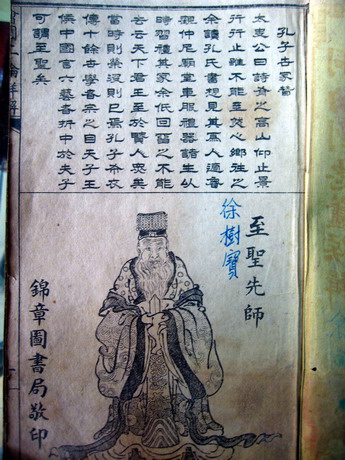 孔子世家贊
太史公曰詩有之高山仰止景
行行止雖不能至然心鄉往之
余讀孔氏書想見其爲人適魯
觀仲尼廟堂車服禮器諸生以
時習禮其家余低回留之不能
去云天下君王至於賢人衆矣
當時則榮沒則已焉孔子布衣
傳十餘世學者宗之自天子王
侯中國言六藝者折中於夫子
可謂至聖矣
至聖先師
徐樹寶
錦章圖書局敬印